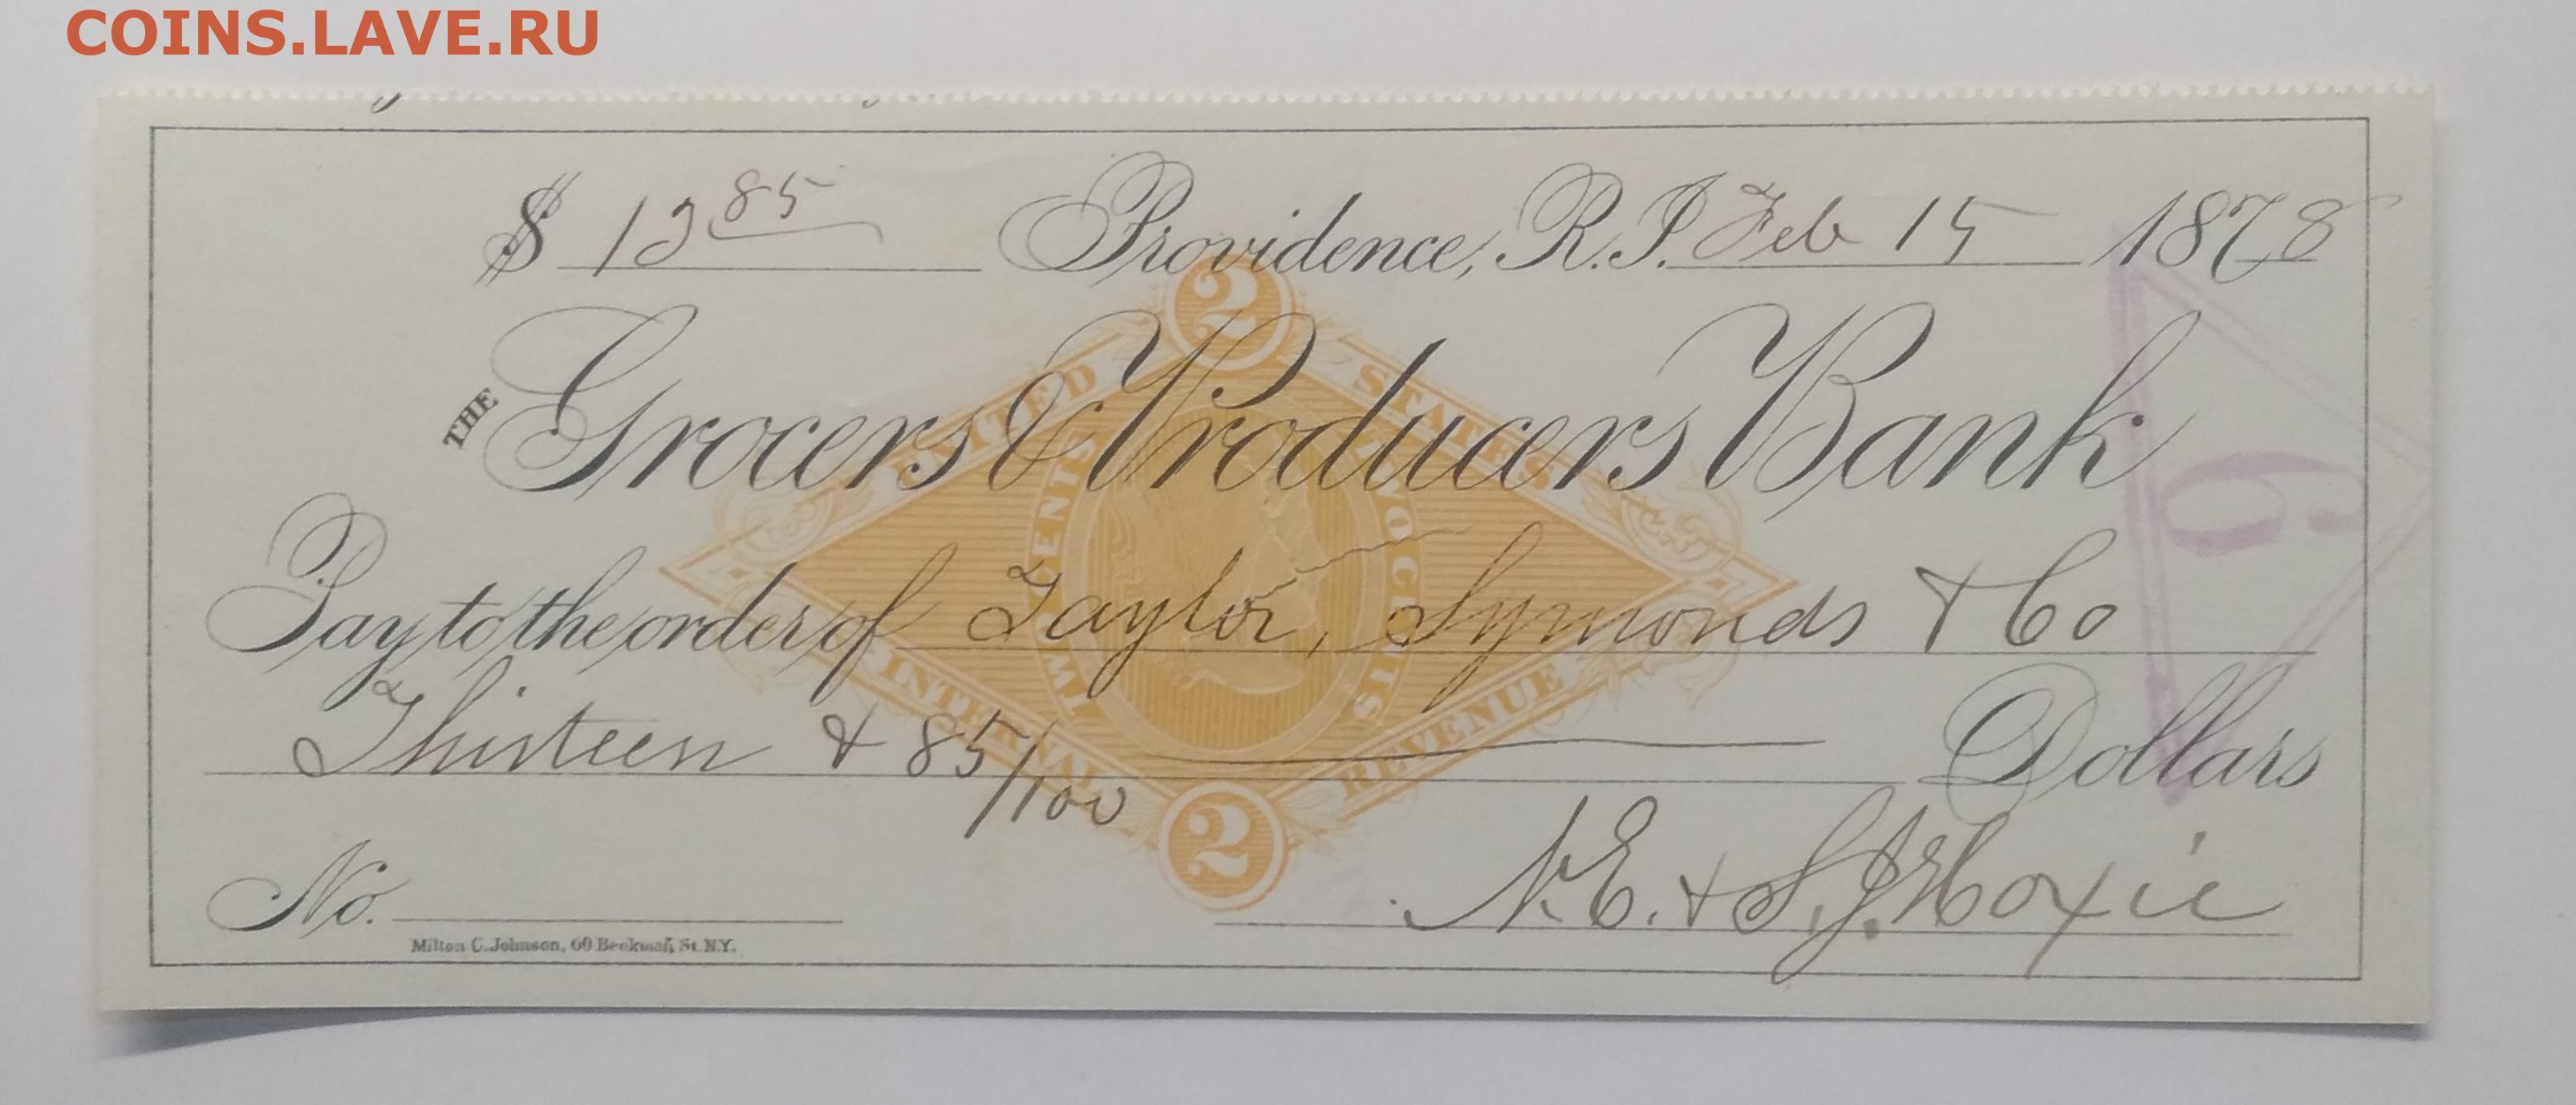 COINS.LAVE.RU
$ 13 85 Providence, R.I. Feb 15 1878
THE Grocers & Producers Bank
Pay to the order of Taylor, Symonds & Co
Thirteen & 85/100 Dollars
No. N.E. & S.J. Hoxie
Milton C. Johnson, 60 Beekman St. N.Y.
2
UNITED STATES
TWO CENTS
TWO CENTS
INTERNAL REVENUE
2
6